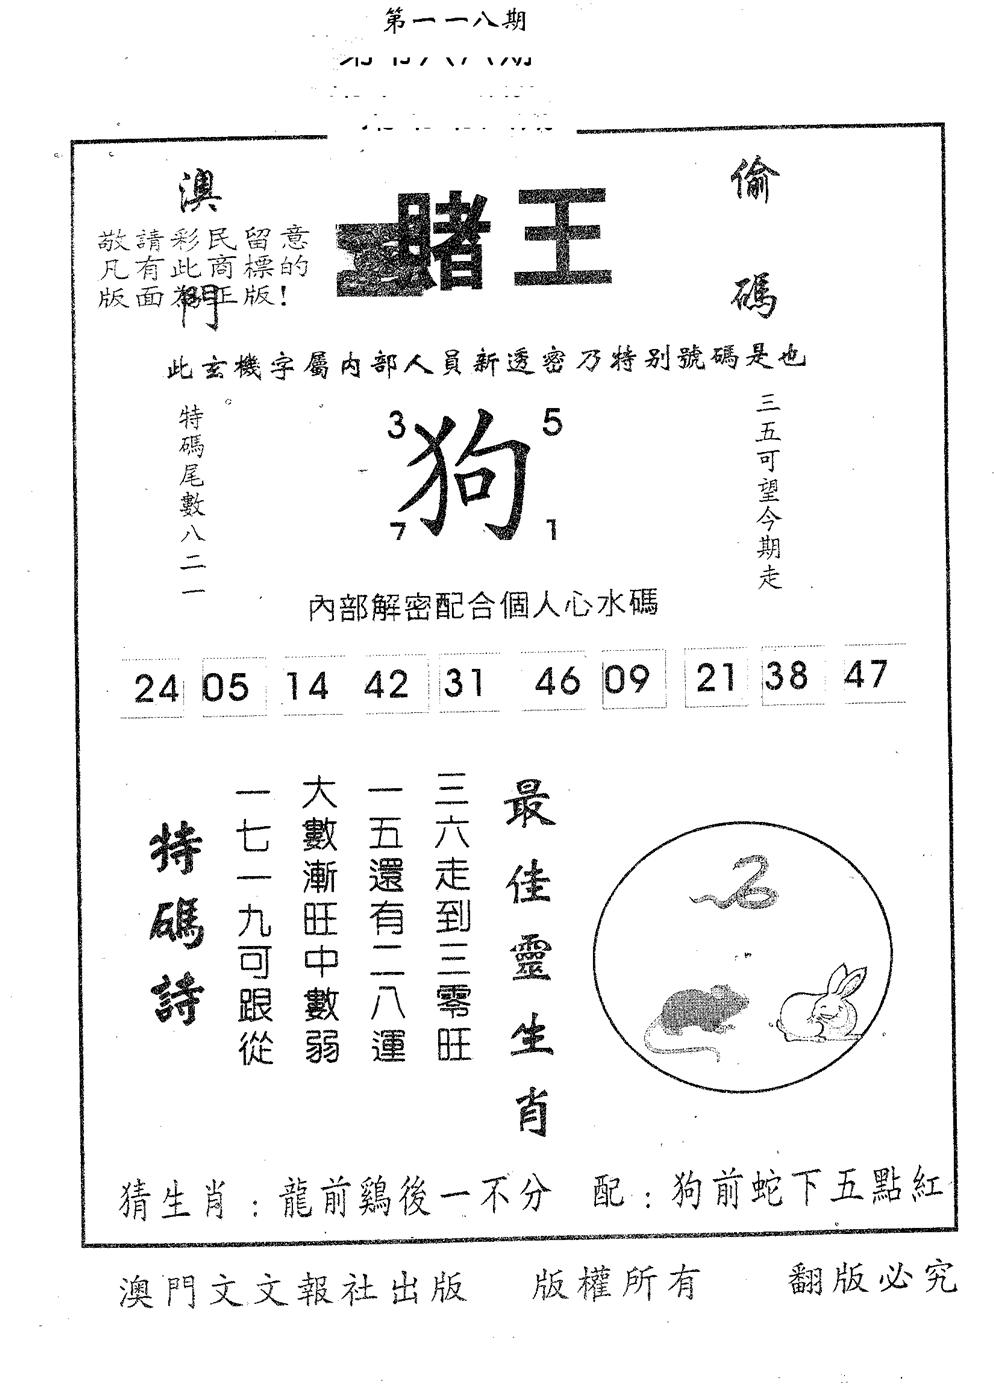 第一一八期
澳門
賭王
偷碼
敬請彩民留意
凡有此商標的
版面為正版!
此玄機字屬内部人員新透密乃特别號碼是也
特碼尾數八二一
3 5
狗
7 1
三五可望今期走
內部解密配合個人心水碼
24 05 14 42 31 46 09 21 38 47
最佳靈生肖
三六走到三零旺
一五還有二八運
大數漸旺中數弱
一七一九可跟從
特碼詩
猜生肖:龍前鷄後一不分 配:狗前蛇下五點紅
澳門文文報社出版 版權所有 翻版必究